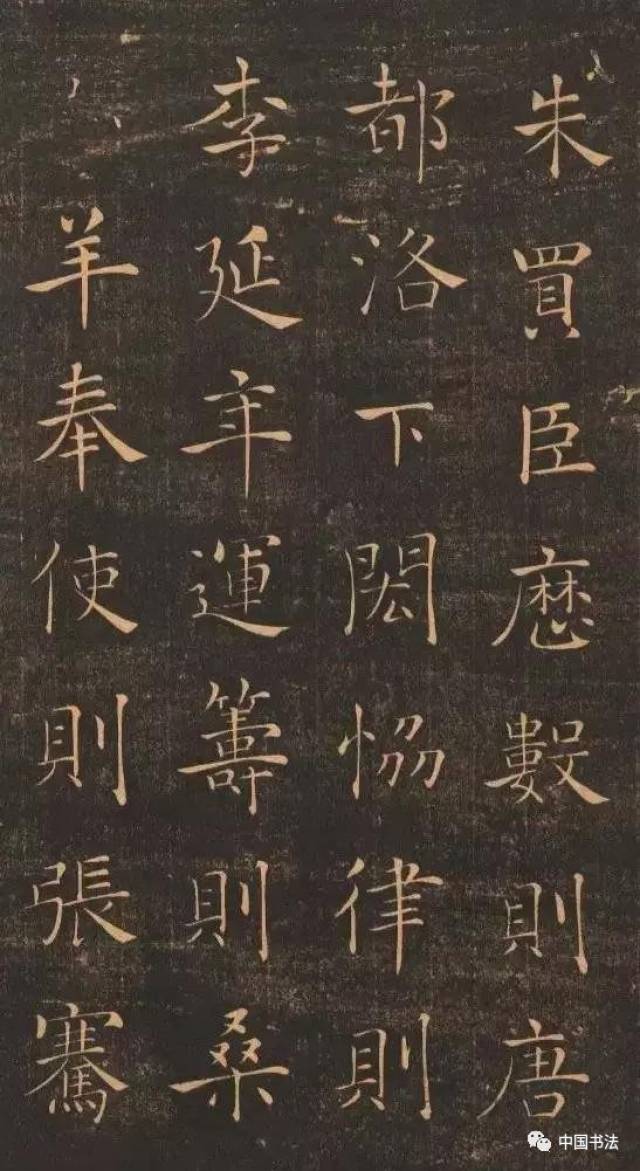 朱買臣厯數則唐
都洛下閎恊律則
李延年運籌則桑
羊奉使則張騫
中国书法